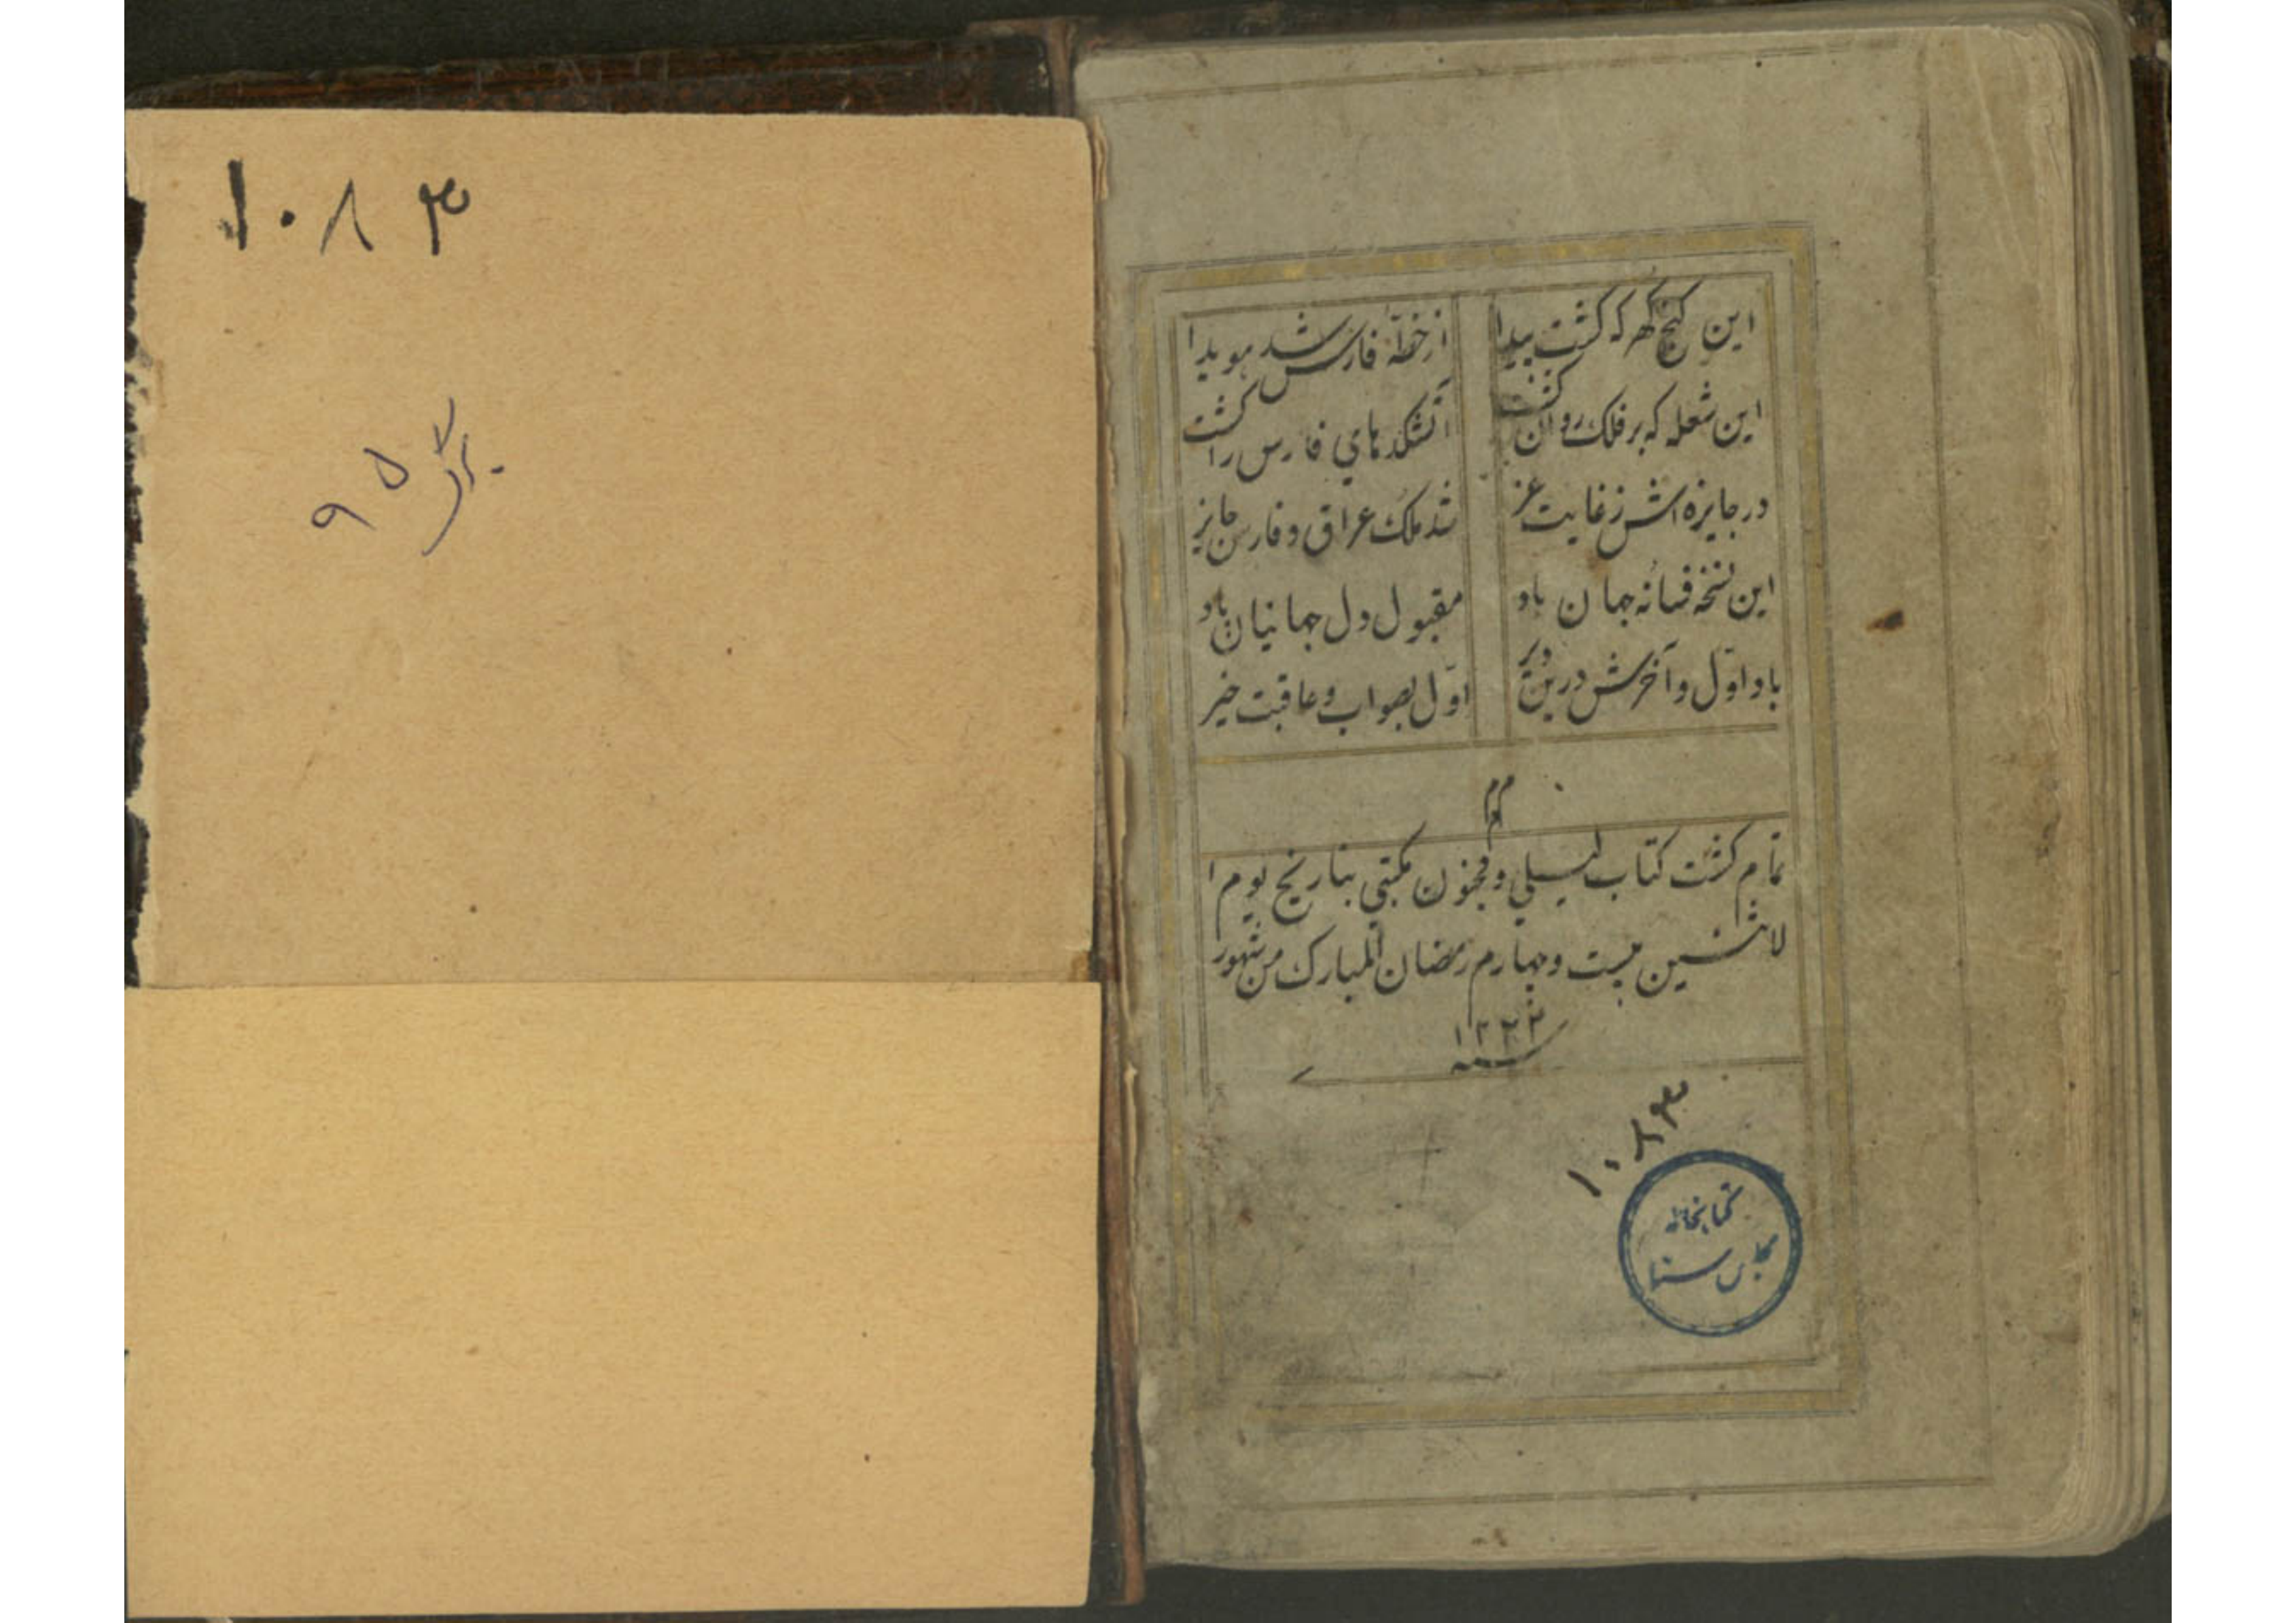 این کنج کهر که کشت پیدا
از خطهٔ فارس شد هویدا
این شعله که بر فلک روان کشت
آتشکدهای فارس را کشت
در جایزه اش ز غایت عز
شد ملک عراق و فارس جایز
این نسخه فسانه جهان باد
مقبول دل جهانیان باد
باد اوّل و آخرش درین دیر
اوّل بصواب و عاقبت خیر
تمام کشت کتاب لیلی و مجنون مکتبی بتاریخ یوم ا
لاثنین بیست و چهارم رمضان المبارک من شهور
سنه ۱۲۲۳
۱۰۸۳
کتابخانه
مجلس سنا
۱۰۸۳
برگ ۹۵